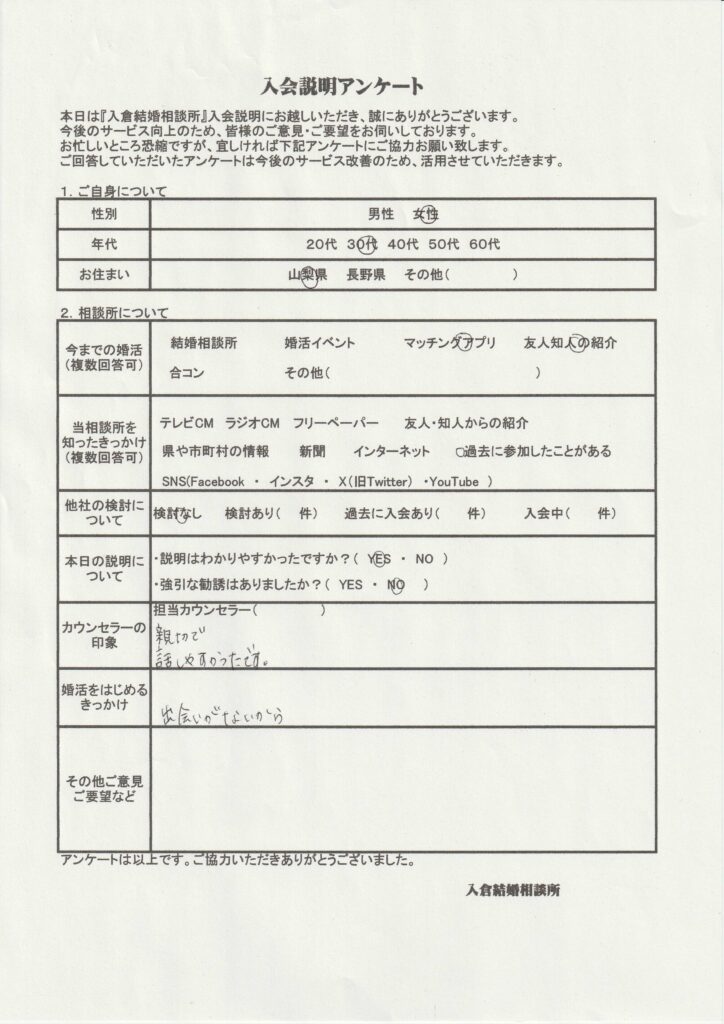 入会説明アンケート
本日は『入倉結婚相談所』入会説明にお越しいただき、誠にありがとうございます。
今後のサービス向上のため、皆様のご意見・ご要望をお伺いしております。
お忙しいところ恐縮ですが、宜しければ下記アンケートにご協力お願い致します。
ご回答していただいたアンケートは今後のサービス改善のため、活用させていただきます。
1. ご自身について
性別 男性 女性
年代 20代 30代 40代 50代 60代
お住まい 山梨県 長野県 その他( )
2. 相談所について
今までの婚活
(複数回答可)
結婚相談所 婚活イベント マッチングアプリ 友人知人の紹介
合コン その他( )
当相談所を
知ったきっかけ
(複数回答可)
テレビCM ラジオCM フリーペーパー 友人・知人からの紹介
県や市町村の情報 新聞 インターネット 過去に参加したことがある
SNS(Facebook ・ インスタ ・ X(旧Twitter) ・YouTube )
他社の検討に
ついて
検討なし 検討あり( 件) 過去に入会あり( 件) 入会中( 件)
本日の説明に
ついて
・説明はわかりやすかったですか?( YES ・ NO )
・強引な勧誘はありましたか?( YES ・ NO )
カウンセラーの
印象
担当カウンセラー( )
親切で
話しやすかったです。
婚活をはじめる
きっかけ
出会いがないから
その他ご意見
ご要望など
アンケートは以上です。ご協力いただきありがとうございました。
入倉結婚相談所